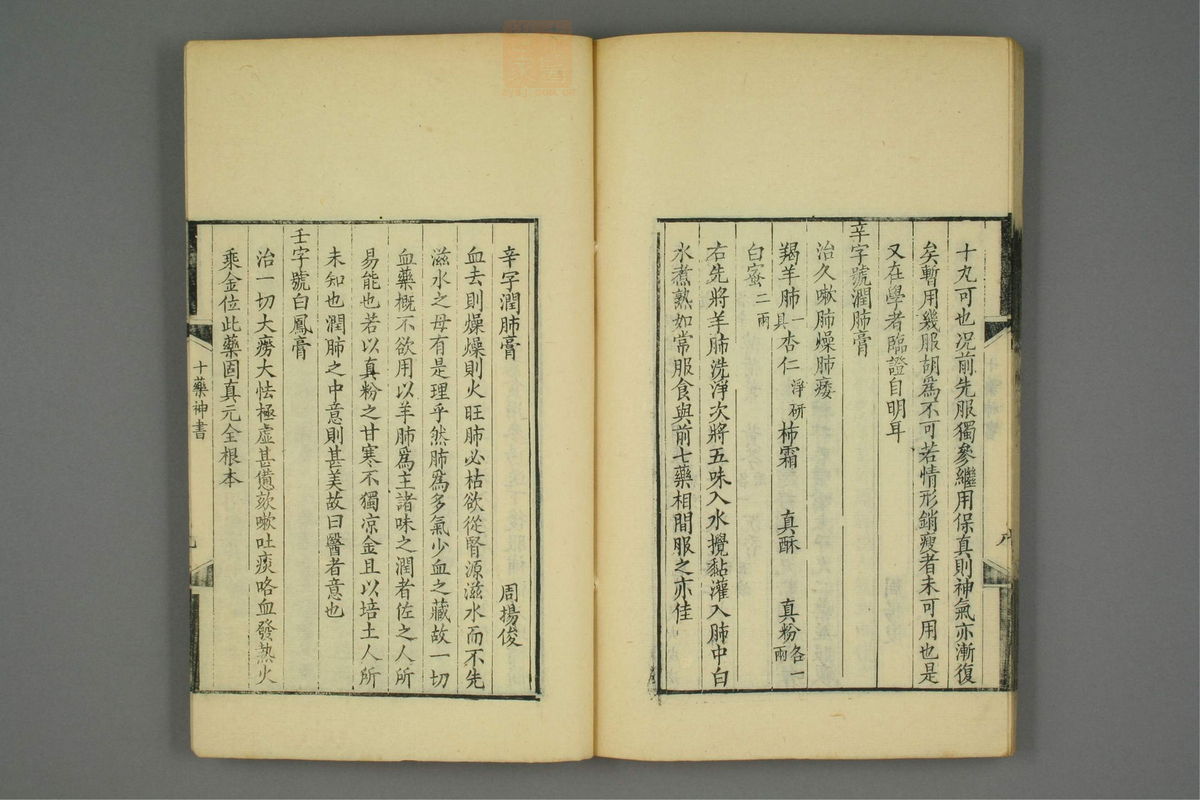 十九可也况前先服獨參繼用保真則神氣亦漸復
矣暫用幾服胡爲不可若情形銷瘦者未可用也是
又在學者臨證自明耳
辛字號潤肺膏
治久嗽肺燥肺痿
羯羊肺一具 杏仁淨研 柿霜 真酥 真粉各一兩
白蜜二兩
右先將羊肺洗淨次將五味入水攪黏灌入肺中白
水煮熟如常服食與前七藥相間服之亦佳
辛字潤肺膏 周揚俊
血去則燥燥則火旺肺必枯欲從腎源滋水而不先
滋水之母有是理乎然肺爲多氣少血之藏故一切
血藥槪不欲用以羊肺爲主諸味之潤者佐之人所
易能也若以真粉之甘寒不獨凉金且以培土人所
未知也潤肺之中意則甚美故曰醫者意也
壬字號白鳳膏
治一切大癆大怯極虛甚憊欬嗽吐痰咯血發熱火
乘金位此藥固真元全根本
十藥神書